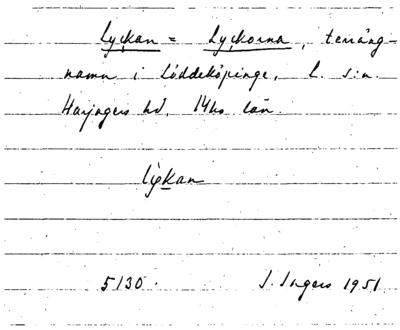 Lyckan = Lyckorna, terräng-
namn i Löddeköpinge, L. s:n.
Harjagers hd, Mhs län.
lykan
5130. I. Ingers 1951